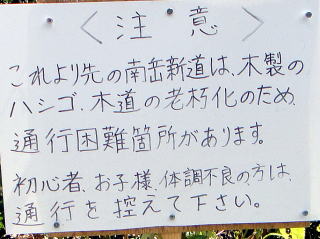 〈 注意 〉
これより先の南岳新道は、木製の
ハシゴ、木道の老朽化のため、
通行困難箇所があります。
初心者、お子様、体調不良の方は、
通行を控えて下さい。